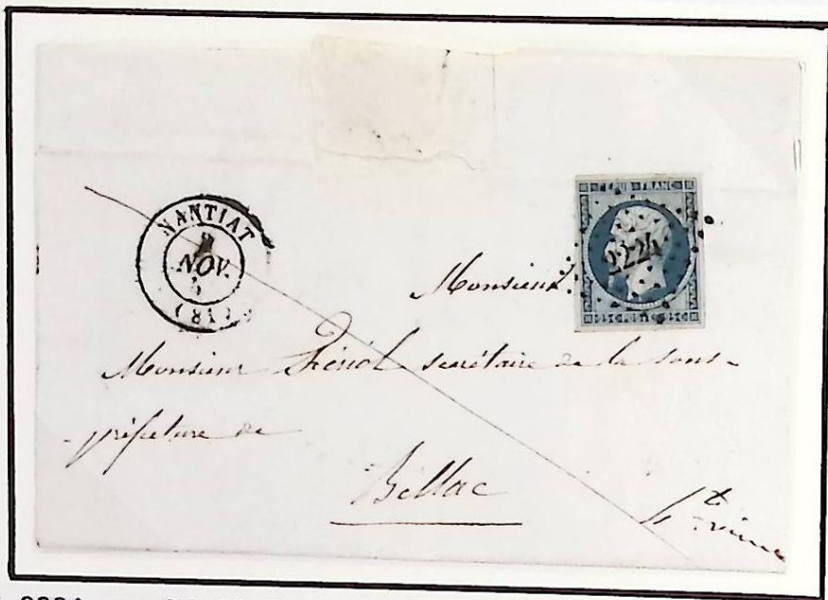 NANTIAT
NOV.
(81)
EMPIRE FRANC
2224
Monsieur
Monsieur secrétaire de la sous-
préfeture de
Bellac
Hte Vienne
2224